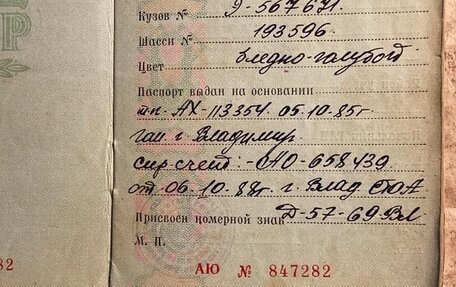 Р
Кузов № 9-567671.
Шасси № 193596
Цвет бледно-голубой
Паспорт выдан на основании
т.п. АХ-113354 05.10.85г
гаи г. Владимир
спр счет: -ОАО-658439
от 06.10.88г. г. Влад СТОА
Присвоен номерной знак Д-57-69 ВЛ
М. П.
82
АЮ № 847282